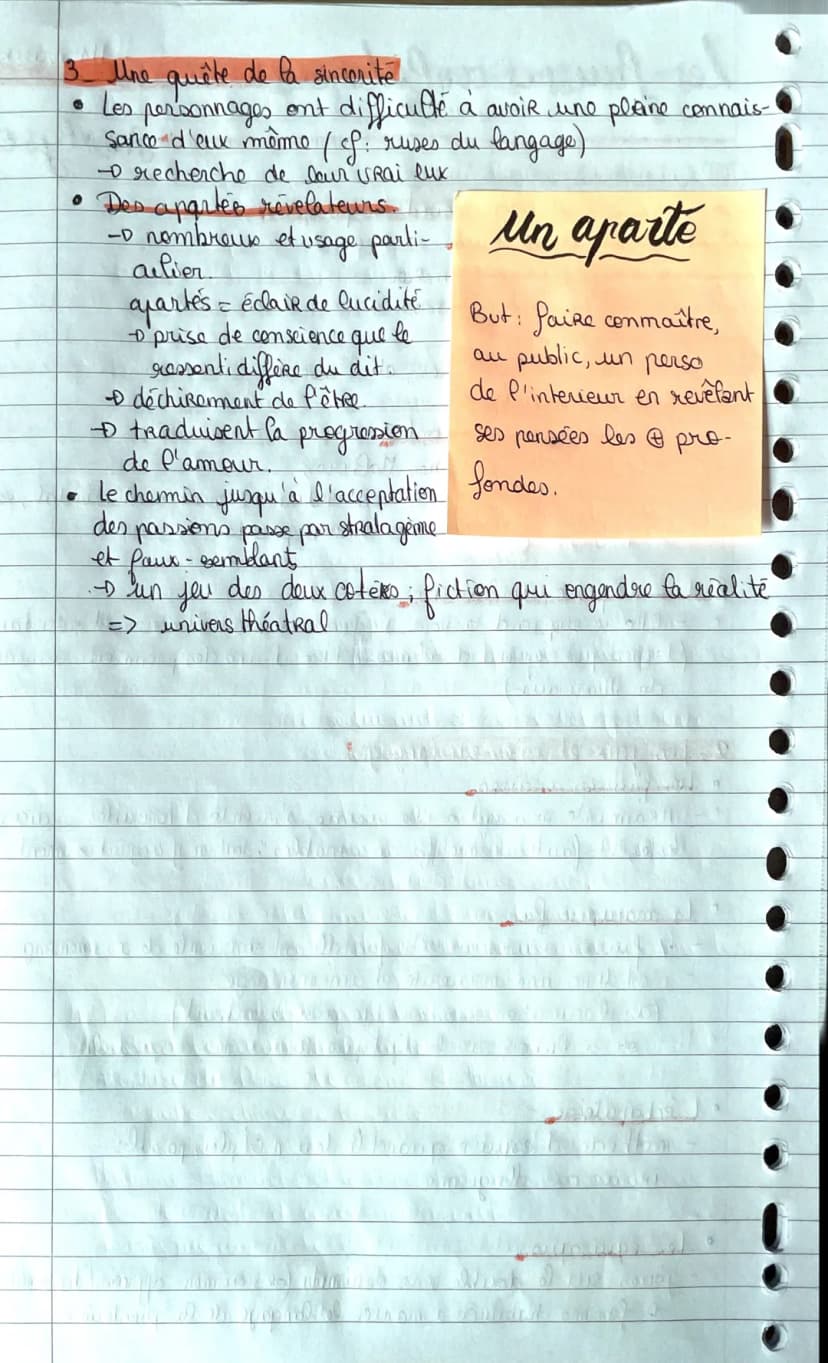 3_ Une quête de la sincérité
• Les personnages ont difficulté à avoir une pleine connais-
sance d'eux même (cf: ruses du langage)
→ recherche de leur vrai eux
• Des apartés révelateurs.
→ nombreux et usage parti-
culier.
apartés = éclair de lucidité
→ prise de conscience que le
ressenti diffère du dit.
→ déchirement de l'être
→ traduisent la progression
de l'amour.
• le chemin jusqu'à l'acceptation
des passions passe par stratagème
et faux-semblant
→ un jeu des deux cotés; fiction qui engendre la réalité
=> univers théatral
Un aparté
But: faire connaître,
au public, un perso
de l'interieur en revêlant
ses pensées les ⊕ pro-
fondes.